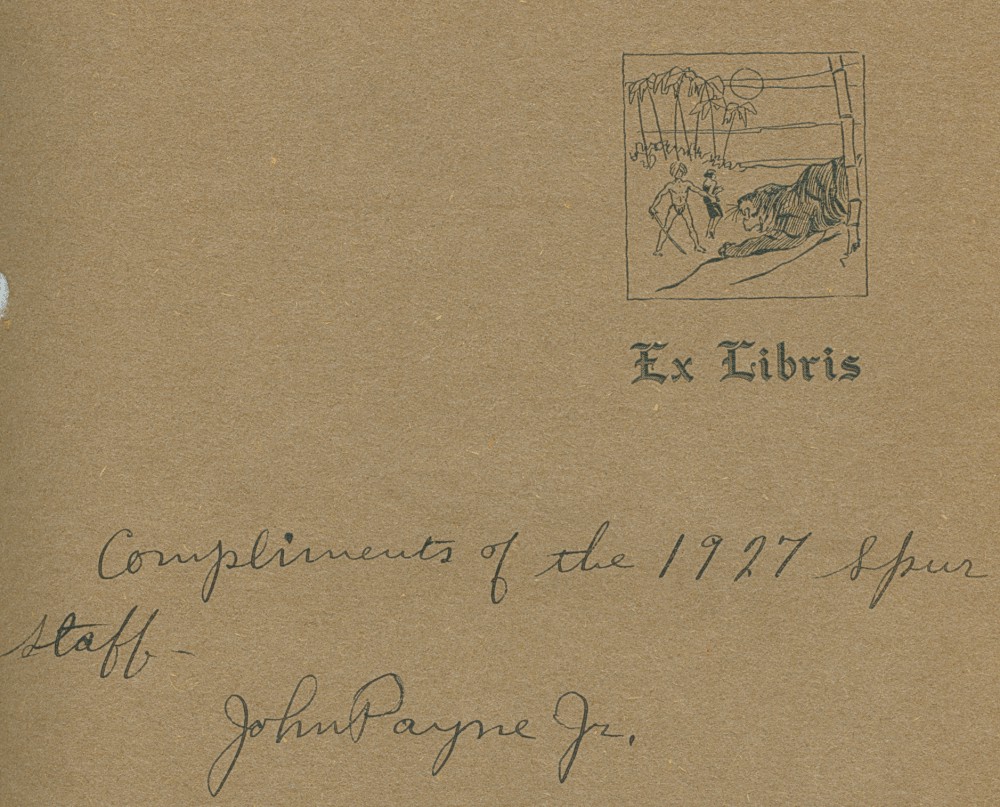 Ex Libris
Compliments of the 1927 Spur
staff-
John Payne Jr.